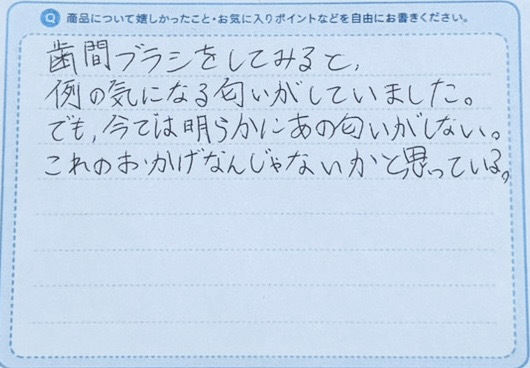 Q 商品について嬉しかったこと・お気に入りポイントなどを自由にお書きください。
歯間ブラシをしてみると,
例の気になる匂いがしていました。
でも,今では明らかにあの匂いがしない。
これのおかげなんじゃないかと思っている。